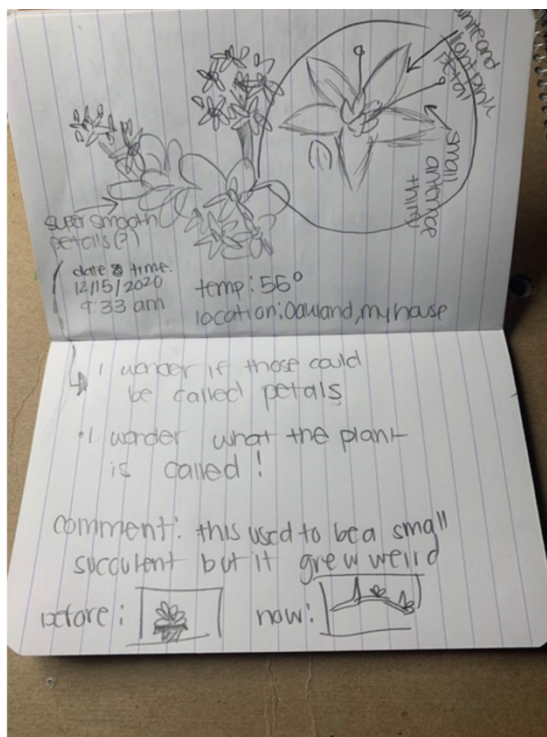 light pink
petal
small
antenae
thing
super smooth
petals(?)
date & time:
12/15/2020
9:33 am
temp: 56°
location: Oakland, my house
I wonder if those could
be called petals
• I wonder what the plant
is called!
comment: this used to be a small
succulent but it grew weird
before:
now: